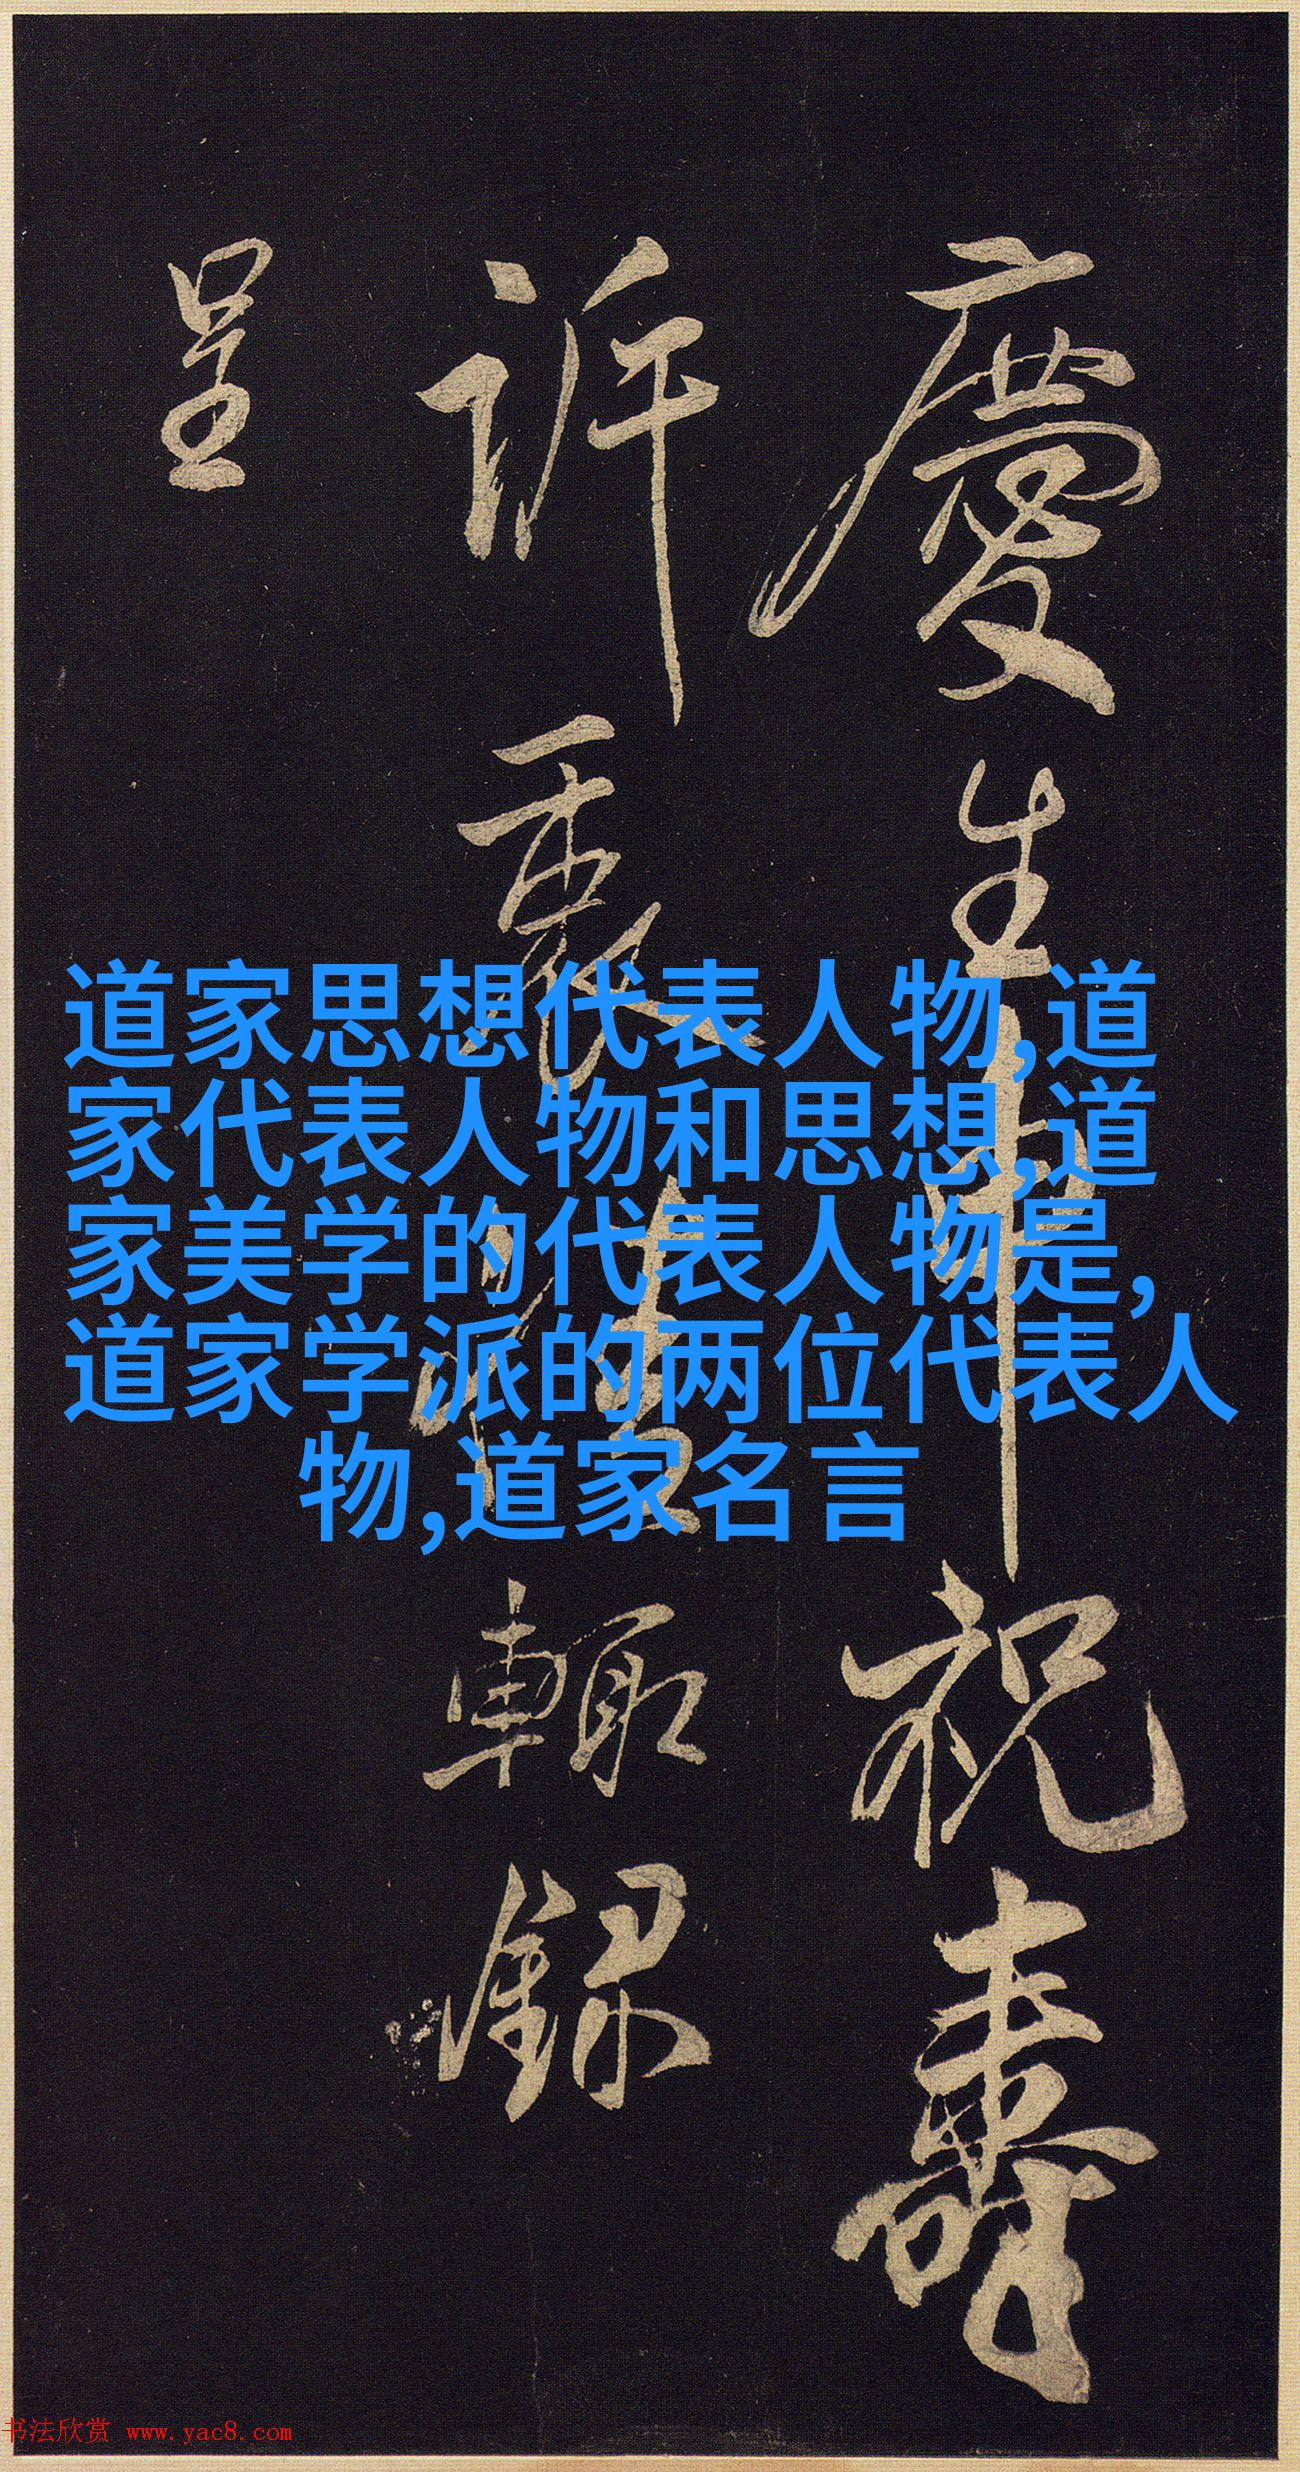 慶生申祝壽
訢衷情輒録
呈
道家思想代表人物,道
家代表人物和思想,道
家美学的代表人物是,
道家学派的两位代表人
物,道家名言
书法欣赏 www.yac8.com